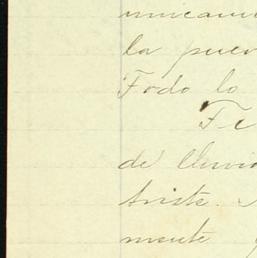 unicam
la puer
Todo lo
Fe
de lluvia
triste.
mente